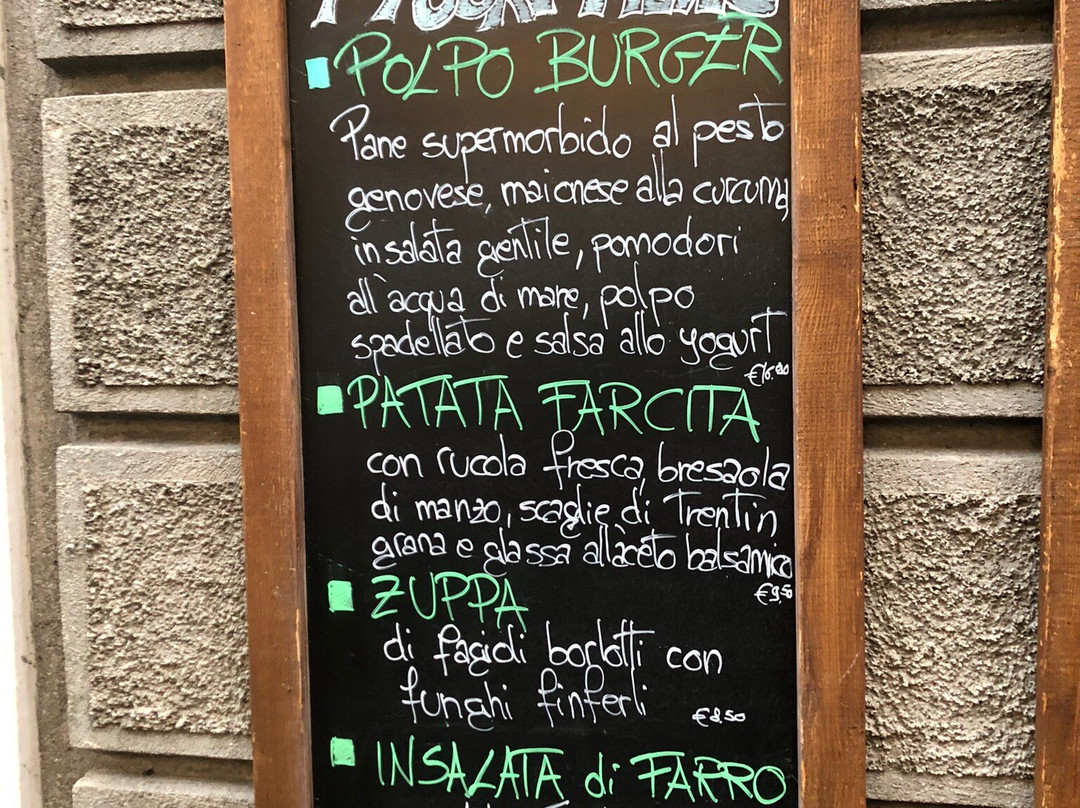 POLPO BURGER
Pane supermorbido al pesto
genovese, maionese alla curcuma,
insalata gentile, pomodori
all'acqua di mare, polpo
spadellato e salsa allo yogurt
€16.00
PATATA FARCITA
con rucola fresca, bresaola
di manzo, scaglie di Trentin
grana e glassa all'aceto balsamico
€9,50
ZUPPA
di fagioli borlotti con
funghi finferli
€8.50
INSALATA di FARRO